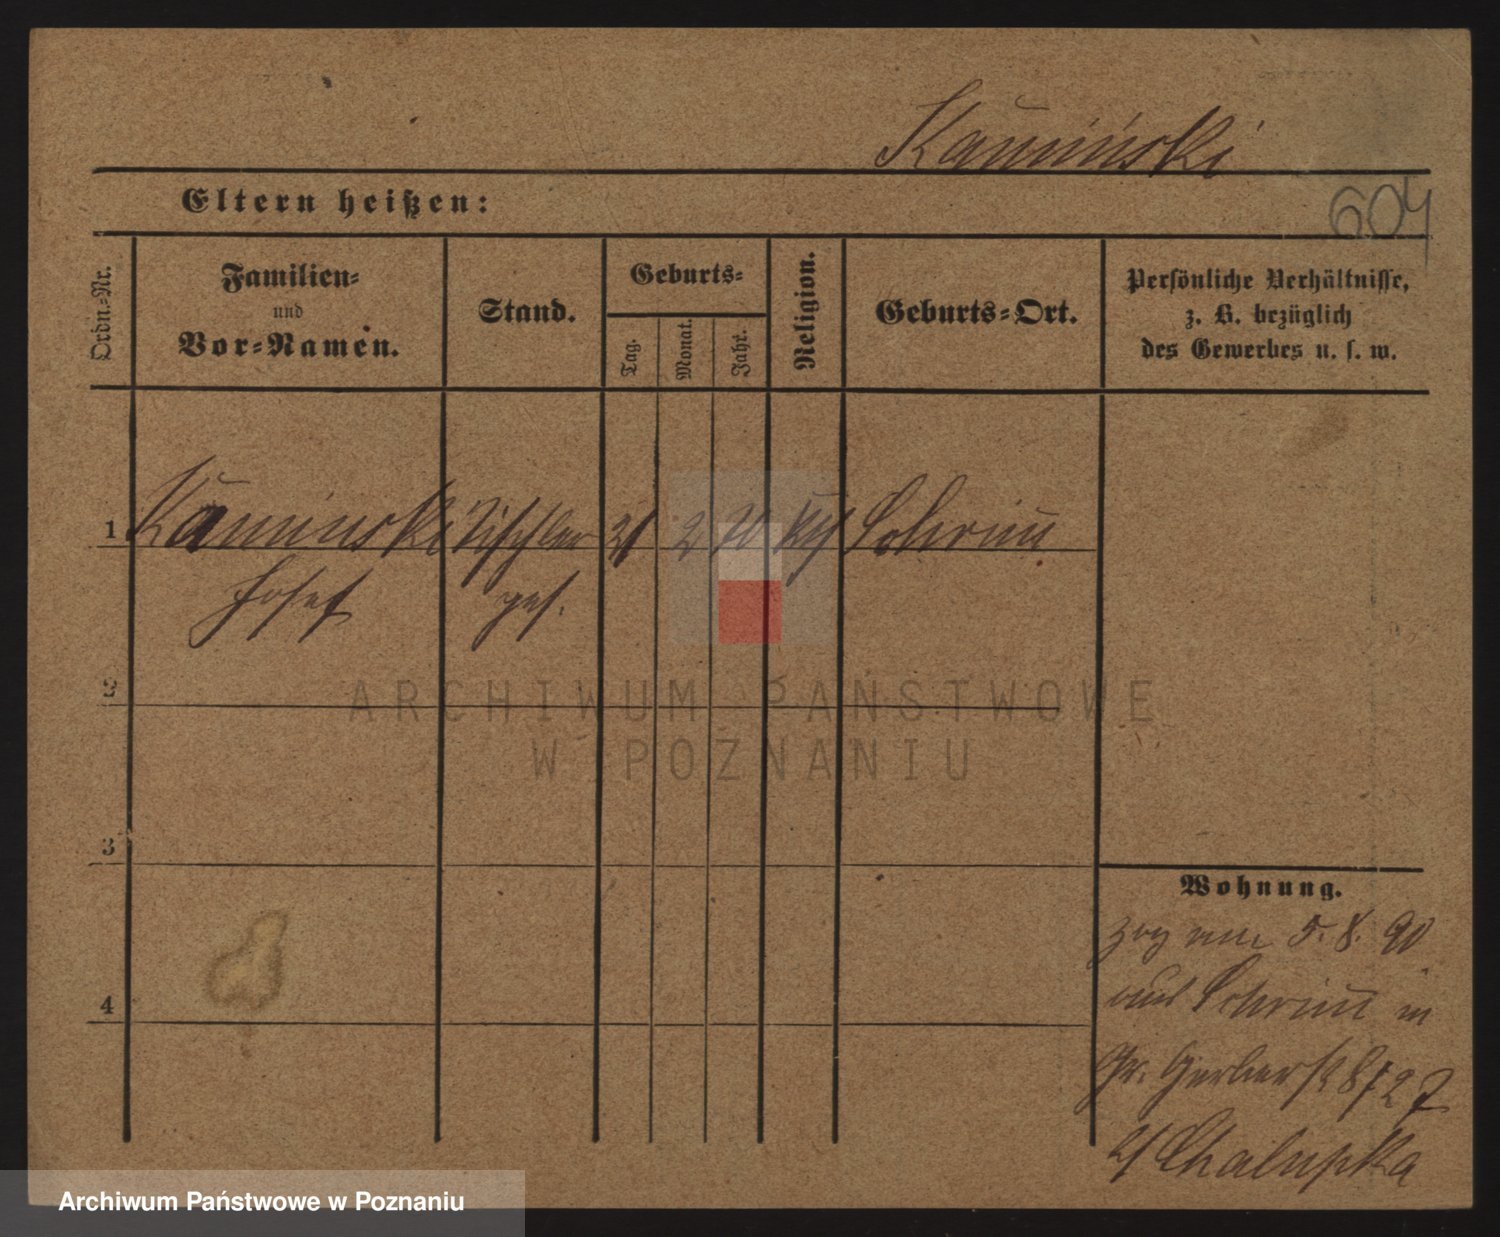 Kaminski
Eltern heißen:
604
Ordn.-Nr.
Familien-
und
Vor-Namen.
Stand.
Geburts-
Tag.
Monat.
Jahr.
Religion.
Geburts-Ort.
Persönliche Verhältnisse,
z. B. bezüglich
des Gewerbes u. s. w.
1 Kaminski Tischler 21 2 70 kth Schrimm
Josef ges.
2
3
4
Wohnung.
zog am 5. 8. 90
aus Schrimm in
Gr. Gerberstr
b/ Chalupka
ARCHIWUM PAŃSTWOWE
W POZNANIU
Archiwum Państwowe w Poznaniu